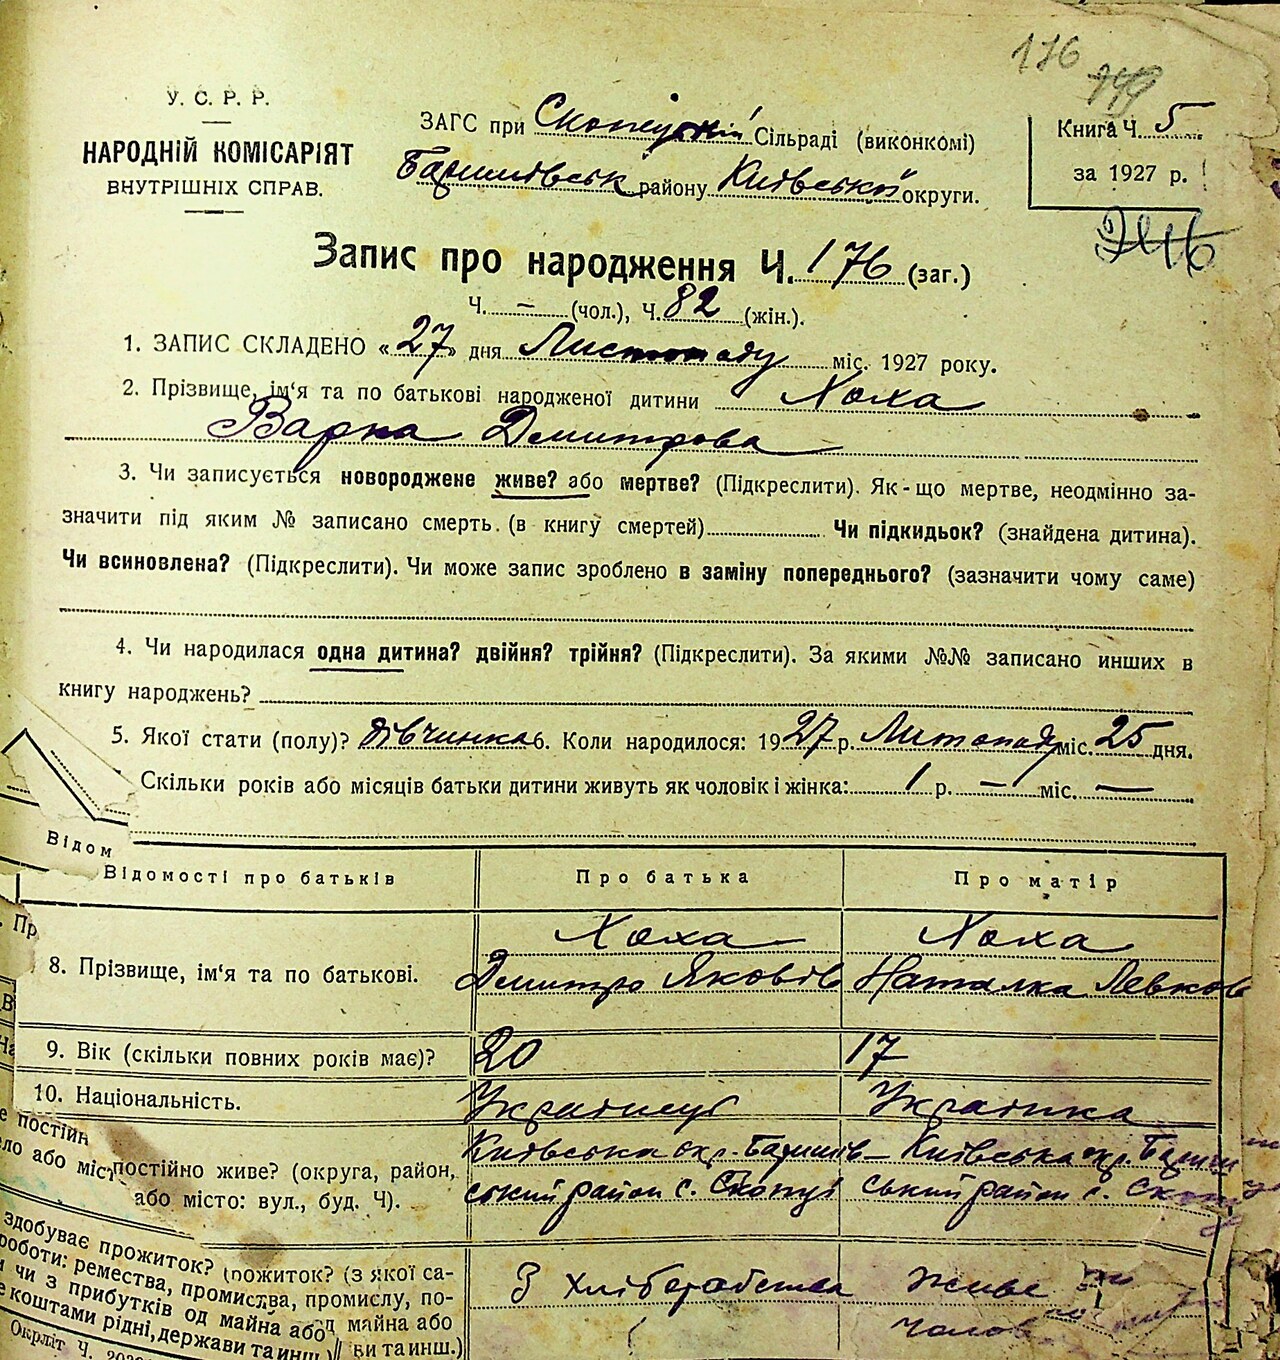 176
У. С. Р. Р.
НАРОДНІЙ КОМІСАРІЯТ
ВНУТРІШНІХ СПРАВ.
ЗАГС при Сільраді (виконкомі)
Баришівськ району Київської округи.
Книга Ч. 5
за 1927 р.
Запис про народження Ч. 176 (заг.)
Ч. — (чол.), Ч. 82 (жін.).
1. ЗАПИС СКЛАДЕНО «27» дня Листопаду міс. 1927 року.
2. Прізвище, ім‘я та по батькові народженої дитини Хоха
Варка Дмитрова
3. Чи записується новороджене живе? або мертве? (Підкреслити). Як-що мертве, неодмінно за-
значити під яким № записано смерть. (в книгу смертей) Чи підкидьок? (знайдена дитина).
Чи всиновлена? (Підкреслити). Чи може запис зроблено в заміну попереднього? (зазначити чому саме)
4. Чи народилася одна дитина? двійня? трійня? (Підкреслити). За якими №№ записано инших в
книгу народжень?
5. Якої стати (полу)? дівчинка 6. Коли народилося: 1927 р. Листопаду міс. 25 дня.
Скільки років або місяців батьки дитини живуть як чоловік і жінка: 1 р. — міс. —
Відом
Відомості про батьків Про батька Про матір
Пр
8. Прізвище, ім‘я та по батькові. Хоха Хоха
Дмитро Яковів Наталка Левков
9. Вік (скільки повних років має)? 20 17
10. Національність. Українець Українка
постійн
ло або міст постійно живе? (округа, район, Київська окр. Баришів– Київська окр. Бариш
або місто: вул., буд. Ч). ський район с. ський район с.
здобуває прожиток? (прожиток? (з якої са-
роботи: ремества, промиства, промислу, по- З хліборобства живе
чи з прибутків од майна або д майна або
коштами рідні, держави та инш.) ви та инш.) чолов
Окрліт Ч.